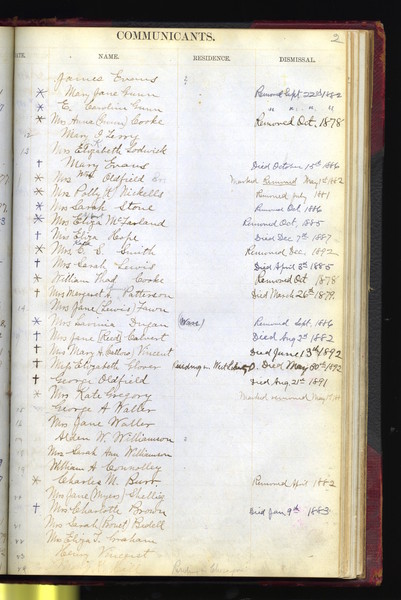 COMMUNICANTS. 2
DATE. NAME. RESIDENCE. DISMISSAL.
James Evans
* Mary Jane Gunn Removed Sept 22nd 1882
* E. Caroline Gunn " " " "
* Mrs Anna (Gunn) Cooke Removed Oct. 1878
12 Mary J. Terry
13 Mrs Elizabeth Lodwick
† Mary Evans Died October 15th 1886
* Mrs Wm Oldfield Marked Removed May 1st 1882
* Mrs Polly K. Nickells Removed July 1881
* Mrs Sarah Stone Removed Oct 1886
* Mrs Eliza McFarland Removed Oct. 1885
† Mrs Eliza Hope Died Dec 7th 1887
* Mrs E. E. Smith Removed Dec. 1892
† Mrs Sarah Lewis Died April 3rd 1885
* William Thad Cooke Removed Oct 1878
† Mrs Margaret A. Patterson Died March 26th 1879.
14 Mrs Jane (Lewis) Fawn
* Mrs Lavinia Dugan (Ware) Removed Sept. 1886
† Mrs Jane (Reed) Calvert Died Aug 2nd 1882
† Mrs Mary H. Vincent Died June 13th 1892
† Miss Elizabeth Glover Died May 30th 1892
† George Oldfield Died Aug. 21st 1891
* Mrs Kate Gregory Marked removed May
15 George A Waller
16 Mrs Jane Waller
Alden W. Williamson
Mrs Sarah Ann Williamson
William A Connolley
* Charles M. Burt Removed April 1882
Mrs Jane (Myers)
† Mrs Charlotte Brown Died Jan 9th 1883
Mrs Sarah Bedell
Mrs Eliza T. Graham
Henry Vincent